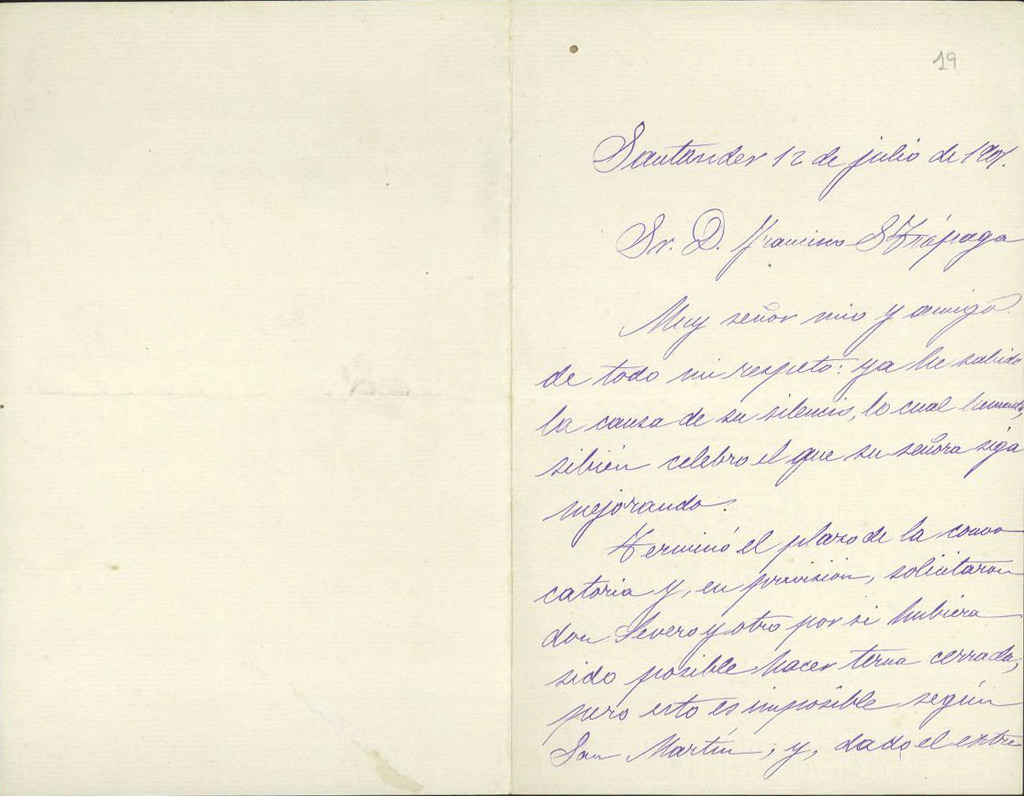 19
Santander 12 de julio de 1901.
Sr. D. Francisco S. Trápaga
Muy señor mio y amigo
de todo mi respeto: ya he sabido
la causa de su silencio, lo cual lamento,
sibién celebro el que su señora siga
mejorando.
Terminó el plazo de la convo
catoria y, en previsión, solicitaron
don Severo y otro por si hubiera
sido posible hacer terna cerrada;
pero esto es imposible según
San Martín; y, dado el extre